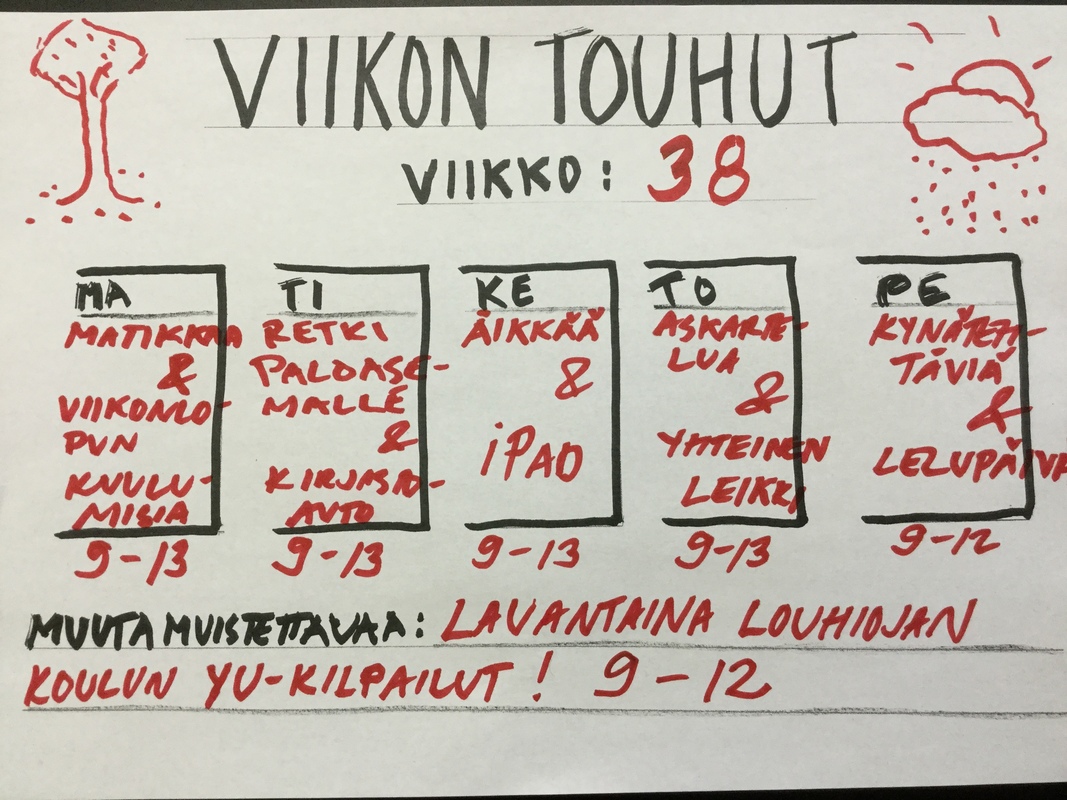 VIIKON TOUHUT
VIIKKO: 38
MA
MATIKKAA
&
VIIKONLO-
PUN
KUULU-
MISIA
9-13
TI
RETKI
PALOASE-
MALLE
&
KIRJASTO-
AUTO
9-13
KE
ÄIKKÄÄ
&
iPAD
9-13
TO
ASKARTE-
LUA
&
YHTEINEN
LEIKKI
9-13
PE
KYNÄTEH-
TÄVIÄ
&
LELUPÄIVÄ
9-12
MUUTA MUISTETTAVAA: LAVANTAINA LOUHIOJAN
KOULUN YU-KILPAILUT! 9-12